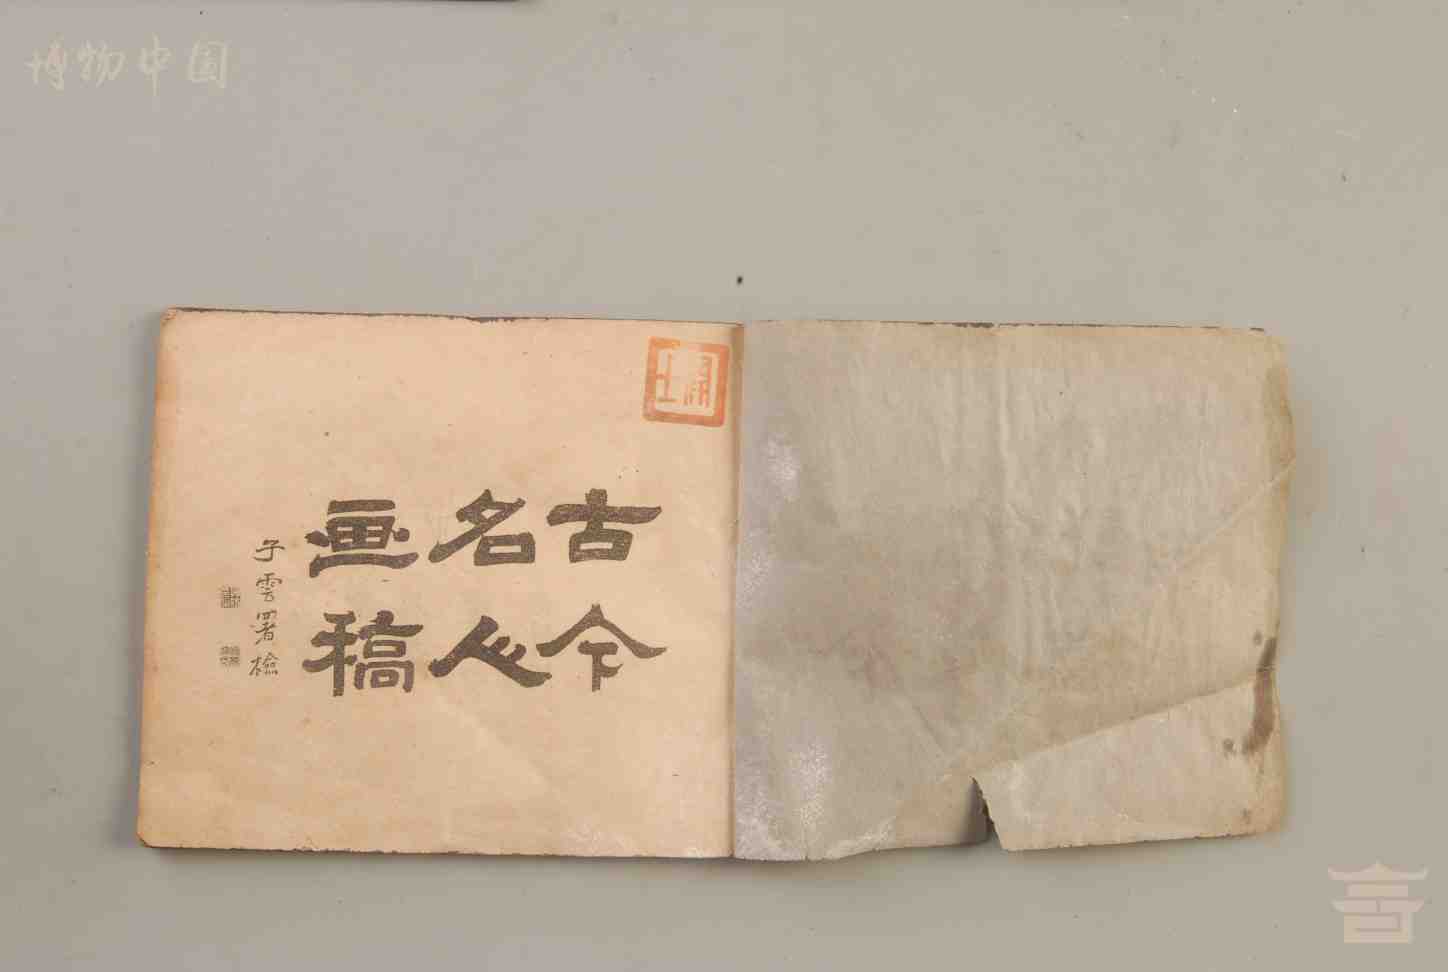 博物中国
古今
名人
画稿
子雲署檢